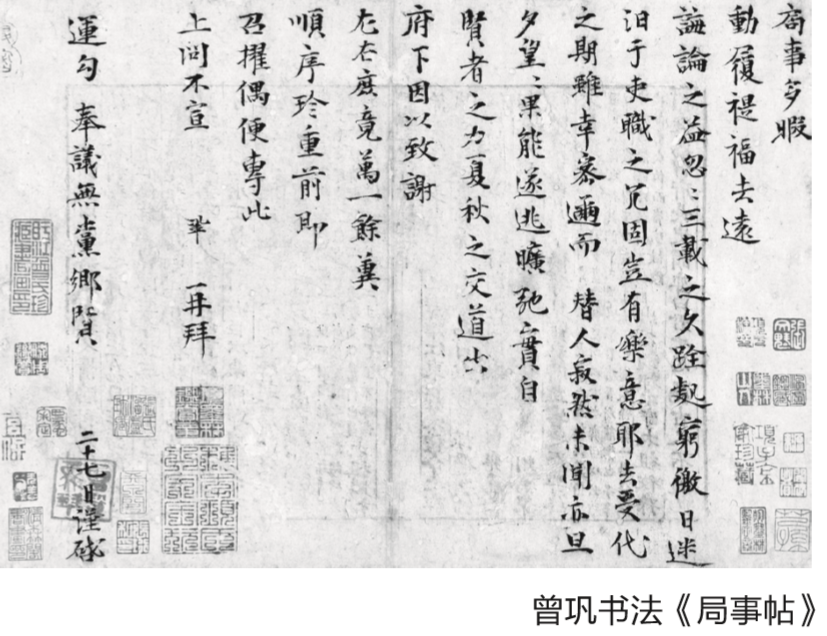 局事多暇
動履禔福去遠
誨論之益忽〻三載之久跧處窮徼日迷
汩于吏職之冗固豈有樂意耶去受代
之期雖幸密邇而 替人寂然未聞亦旦
夕望〻果能遂逃曠弛實自
賢者之力夏秋之交道出
府下因以致謝
左右庶竟萬一餘冀
順序珍重前即
召擢偶便專此
上問不宣 鞏 再拜
運勾 奉議無黨鄉賢 二十七日謹啓
項子京家珍藏
曾巩书法《局事帖》